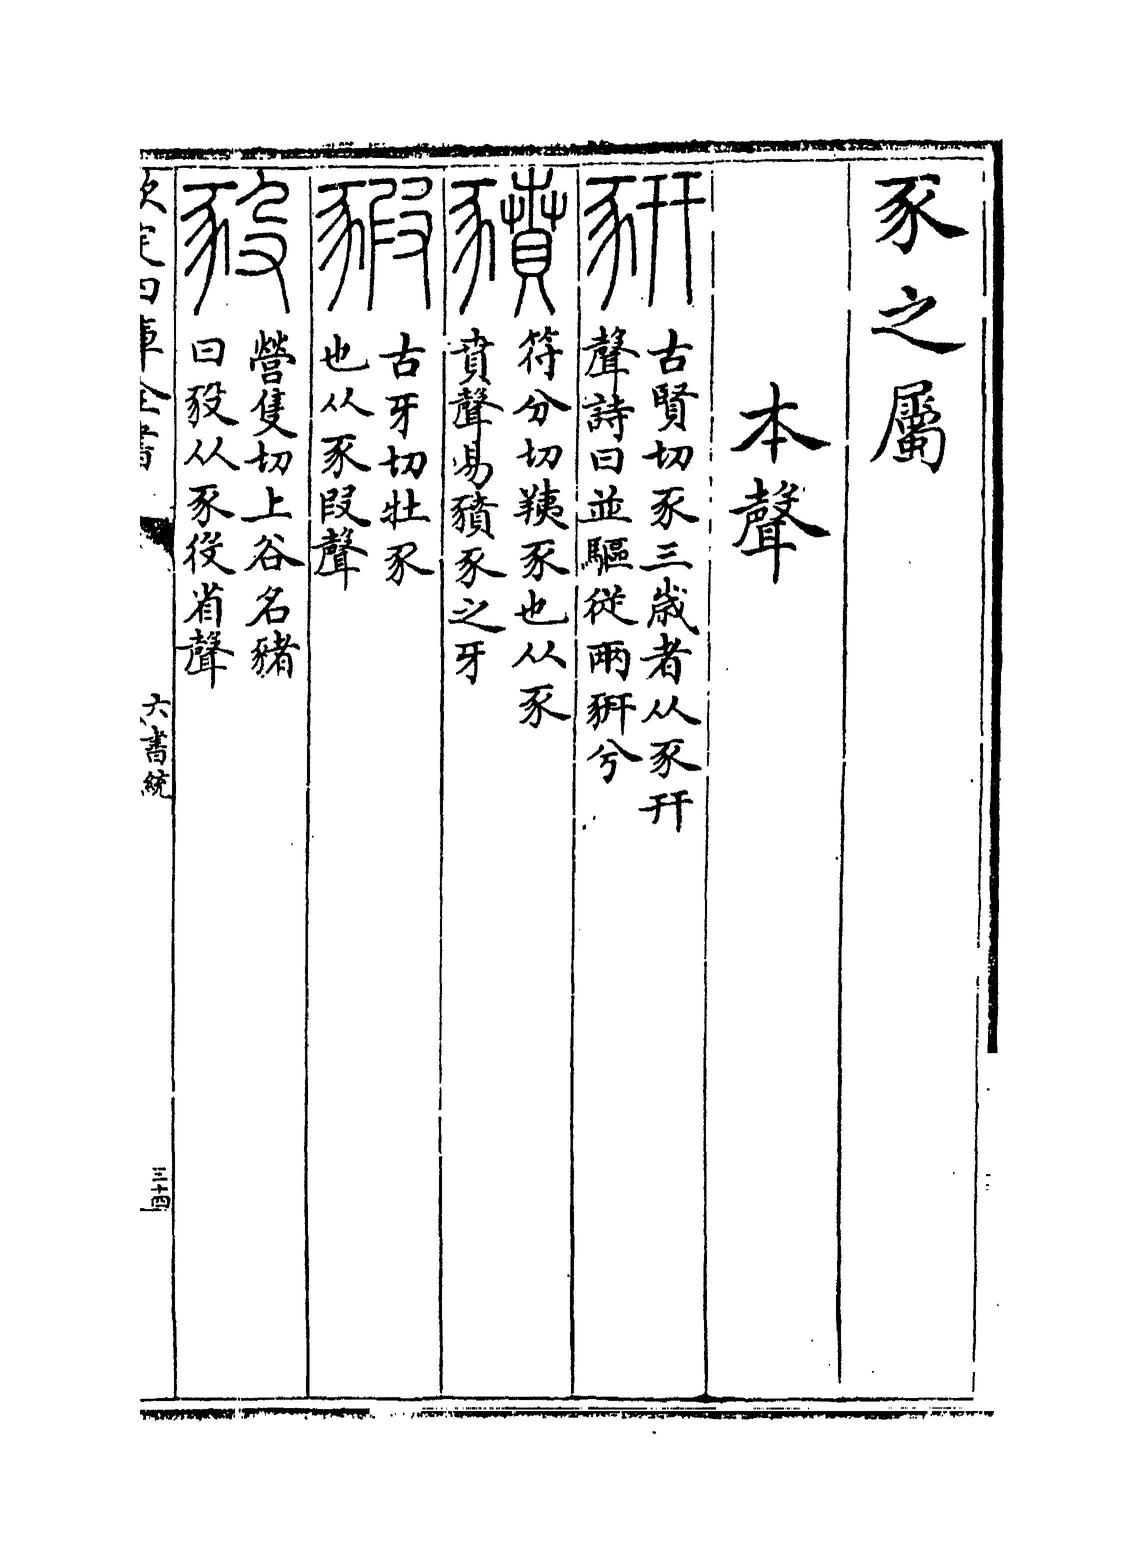 豕之屬
本聲
豣
古賢切豕三歳者从豕幵
聲詩曰並驅從兩豣兮
豶
符分切羠豕也从豕
賁聲易豶豕之牙
豭
古牙切牡豕
也从豕叚聲
豛
營隻切上谷名豬
曰豛从豕役省聲
欽定四庫全書
六書統
三十四